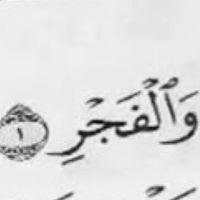 وَٱلْفَجْرِ ١